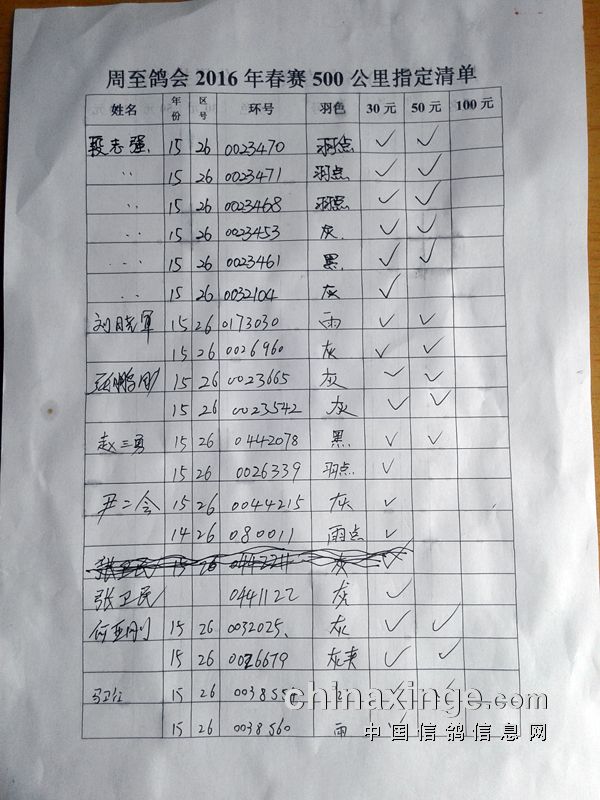 周至鸽会 2016 年春赛 500 公里指定清单
姓名 年份 区号 环号 羽色 30元 50元 100元
段志强 15 26 0023470 羽点 ✓ ✓
〃 15 26 0023471 羽点 ✓ ✓
〃 15 26 0023468 羽点 ✓ ✓
〃 15 26 0023453 灰 ✓ ✓
〃 15 26 0023461 黑 ✓ ✓
〃 15 26 0032104 灰 ✓
刘晓军 15 26 0173030 雨 ✓ ✓
15 26 0026960 灰 ✓ ✓
张鹏刚 15 26 0023665 灰 ✓ ✓
15 26 0023542 灰 ✓ ✓
赵三勇 15 26 0442078 黑 ✓ ✓
15 26 0026339 羽点 ✓
尹二会 15 26 0044215 灰 ✓
14 26 080011 雨点 ✓
张卫民 15 26 灰
张卫民 0441122 灰 ✓
何亚刚 15 26 0032025 灰 ✓ ✓
15 26 0026679 灰夹 ✓ ✓
15 26
15 26 0038560 雨
chinaxinge.com
中国信鸽信息网